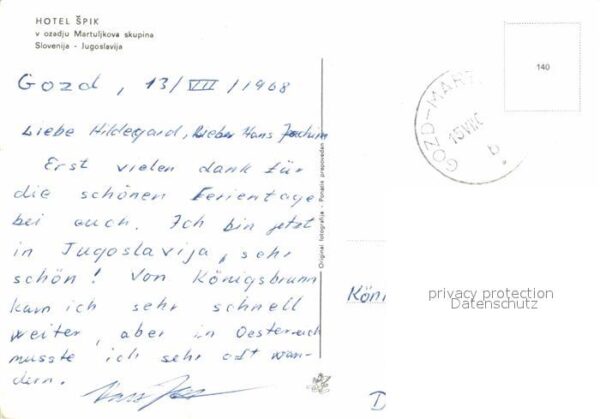 HOTEL ŠPIK
v ozadju Martuljkova skupina
Slovenija - Jugoslavija
Gozd, 13/VII/1968
Liebe Hildegard, Lieber Hans Jochum
Erst vielen dank für
die schönen Ferientage
bei euch. Ich bin jetzt
in Jugoslavija, sehr
schön! Von Königsbrunn
kam ich sehr schnell
weiter, aber in Oesterreich
musste ich sehr oft wan-
dern.
Original fotografija - Ponatis prepovedan
GOZD-MART
15VII6
b
140
Köni
privacy protection
Datenschutz
D